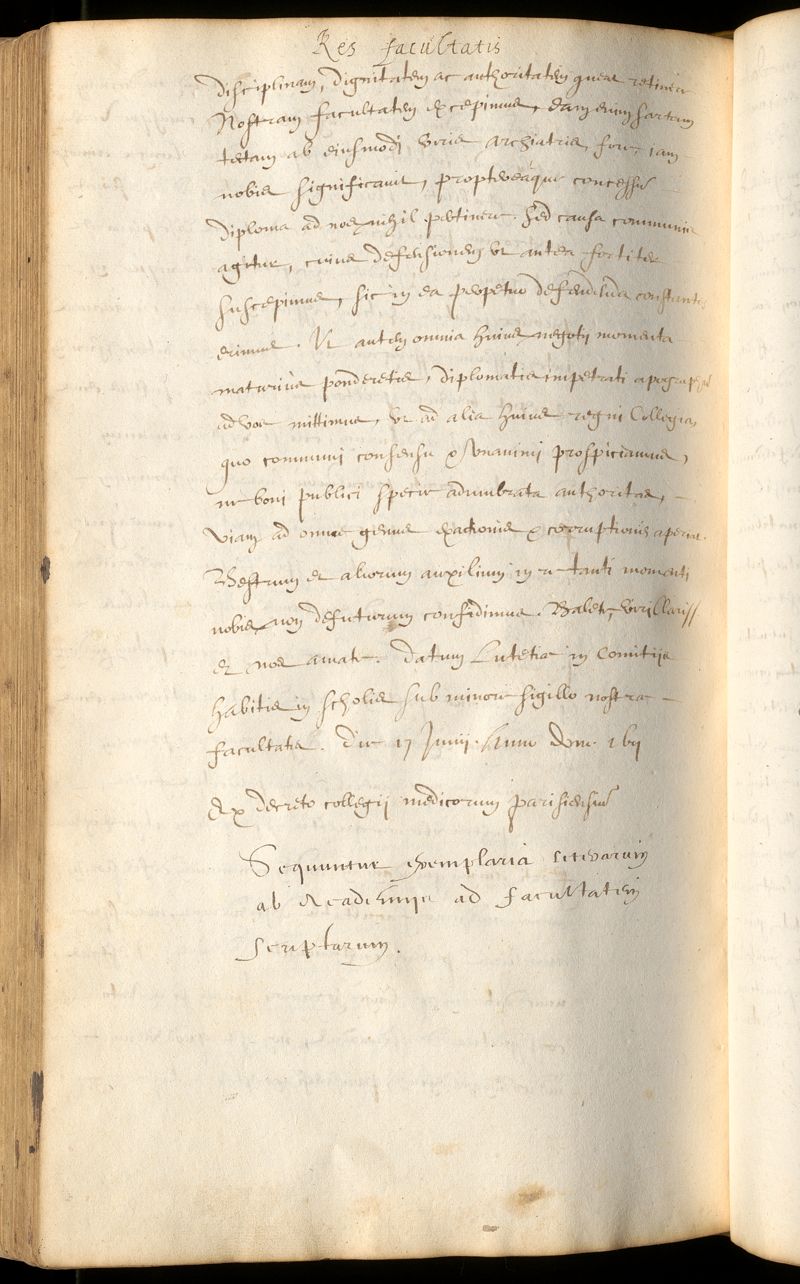 Res facultatis
disciplinam, dignitatem ac authoritatem queat retinere
Nostram facultatem excepimus, eam enim sartam
tectam ab eiusmodi viris archiatris fore, iam
nobis significavit, proptereaque concessũ
diploma ad nos nihil pertinere. Sed causa communis
agitur, cuius defensionem ut antea fortiter
suscepimus, sic in ea perpetuo defendenda constantes
erimus. Ut autem omnia huius negotij momenta
maturius ponderetis, diplomatis impetrati apographum
ad vos mittimus, ut ad alia huius regni Collegia,
quo communi consensu & unanimi prospiciamus,
ne boni publici specie adumbrata authoritas,
viam ad omne genus exactionis & corruptionis aperiat.
Vestrum et aliorum auxilium in re tanti momenti
nobis non defuturum confidimus. Valete, viri clariss
et nos amate. datum Lutetiæ in Comitijs
habitis in scholis sub minori sigillo nostræ
facultatis. die 17 Junij. Anno dom.
Ex decreto collegij medicorum parisiensiũ
Sequuntur exemplaria literarum
ab Academijs ad facultatem
scriptarum.